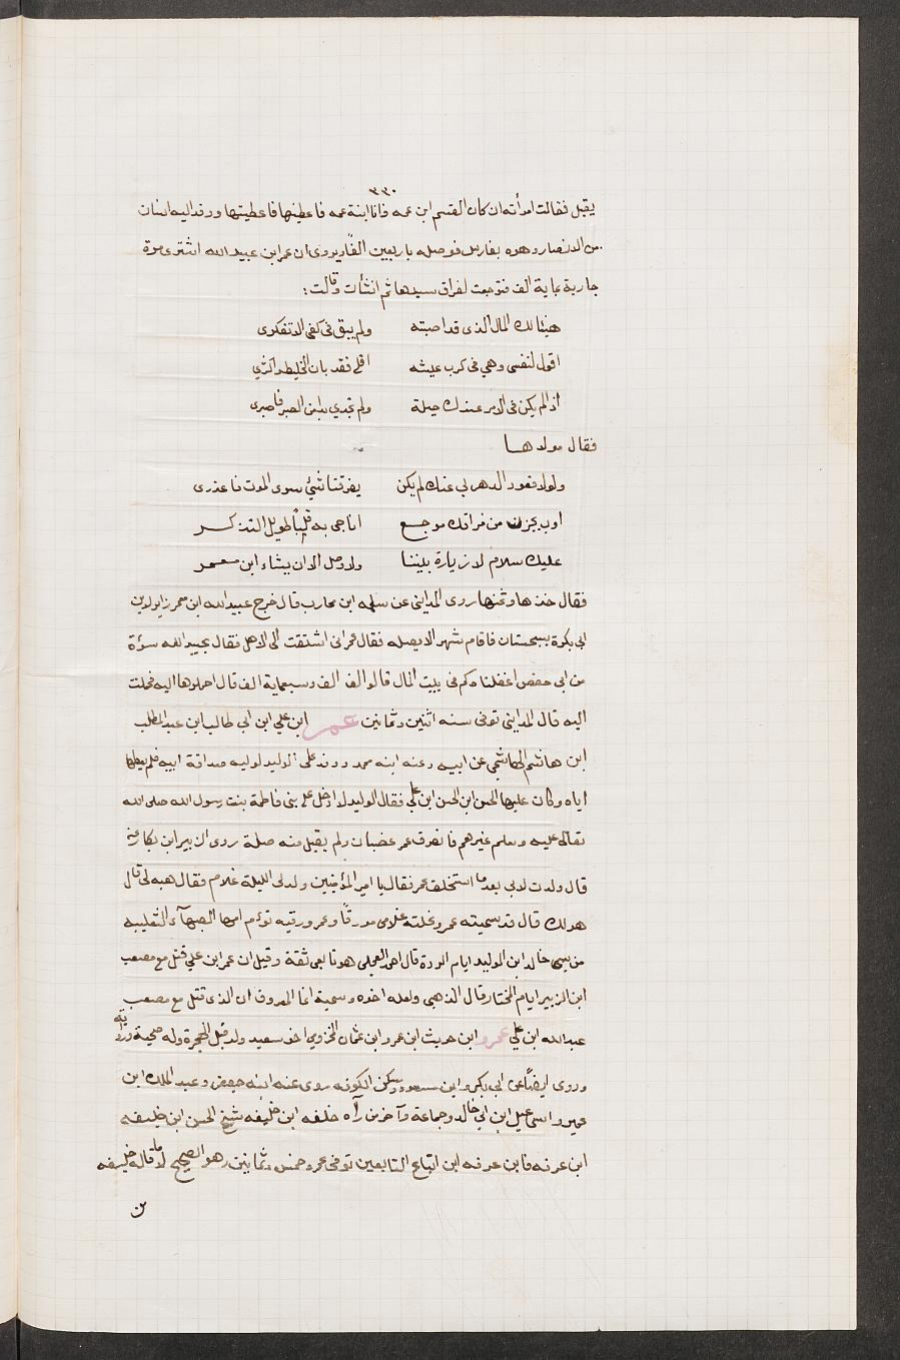 ٣٣٠
يقبل فقالت امرأته ان كان القسم ابن عمه فانا ابنة عمه فاعطيتها فاعطيتها ووفد اليه انسان
من الانصار وهوه بفارس فوصله باربعين الفًا ويروى ان عمر ابن عبيد الله اشترى مرة
جارية بماية الف فتوجعت لفراق سيدها ثم انشأت وقالت:
هنيئا لك المال الذي قد اصبته ولم يبق في كفي الا تفكرى
اقول لنفسى وهي في كرب عيشه اقلي فقد بان الخليط او اكثري
اذا لم يكن في الامر عندك حيلة ولم تجدي من الصبر فاصبرى
فقال مولاها
ولولا قعود الدهر بي عنك لم يكن يفرقنا شيٌ سوى الموت فاعذرى
اوب بحزن من فراقك موجع اناجى به قلبًا طويل التذكر
عليك سلام لا زيارة بيننا ولا وصل الا ان يشاء ابن معمر
فقال خذها وثمنها روى المدايني عن سلمه ابن محارب قال خرج عبيد الله ابن معمر زايرا لابن
ابى بكرة بسجستان فاقام شهرا لا يصله فقال عمر انى اشتقت الى الاهل فقال عبيد الله سوءة
من ابى حفص اغفلناه كم في بيت المال قالوا الف الف وسبعماية الف قال احملوها اليه فحملت
اليه قال المدايني توفى سنه اثنين وثمانين عمر ابن علي ابن ابى طالب ابن عبد المطلب
ابن هاشم الهاشمي عن ابيه وعنه ابنه محمد ووفد على الوليد لوليه صداقة ابيه فلم يعطها
اياه وكان عليها الحسن ابن الحسن ابن علي فقال الوليد لا ادخل على بنى فاطمة بنت رسول الله صلى الله
تعالى عليه وسلم غيرهم فانصرف عمر غضبان ولم يقبل منه صلة روى الزبير ابن بكار عنه
قال ولدت لابى بعد ما استخلف عمر فقال يا امير المؤمنين ولد لى الليلة غلام فقال هبه لى قال
هولك قال قد سميته عمر ونحلته غلامى مورقًا وعمر ورقيه توءم امها الصهبآء الثعلبيه
من سبى خالد ابن الوليد ايام الردة قال احمد العجلي هو تابعى ثقة وقيل ان عمر ابن علي قتل مع مصعب
ابن الزبير ايام المختار قال الذهبى ولعله اخوه وسميه انما المعروف ان الذى قتل مع مصعب
عبد الله ابن علي عمرو ابن حريث ابن عمرو ابن عثمان المخزومي اخو سعيد ولد قبل الهجرة وله صحبة ورواية
وروى ايضًا عن ابى بكر وابن مسعود وسكن الكوفه روى عنه ابنه جعفر وعبد الملك ابن
عمير واسماعيل ابن ابى خالد وجماعة وآخر من رآه خلف ابن خليفه شيخ الحسن ابن
ابن عرفه فابن عرفه ابن اتباع التابعين توفى عمرو خمس وثمانين وهو الصحيح لا ما قاله خليفه
من